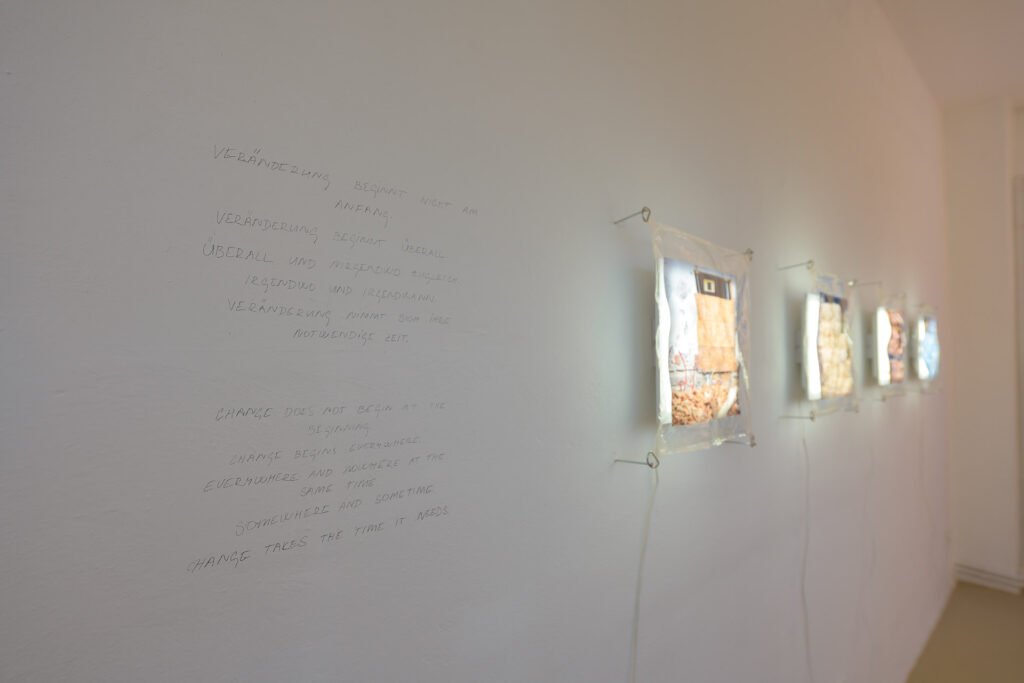 VERÄNDERUNG BEGINNT NICHT AM
ANFANG.
VERÄNDERUNG BEGINNT ÜBERALL
ÜBERALL UND NIRGENDWO ZUGLEICH
IRGENDWO UND IRGENDWANN.
VERÄNDERUNG NIMMT SICH IHRE
NOTWENDIGE ZEIT.
CHANGE DOES NOT BEGIN AT THE
BEGINNING
CHANGE BEGINS EVERYWHERE.
EVERYWHERE AND NOWHERE AT THE
SAME TIME
SOMEWHERE AND SOMETIME
CHANGE TAKES THE TIME IT NEEDS